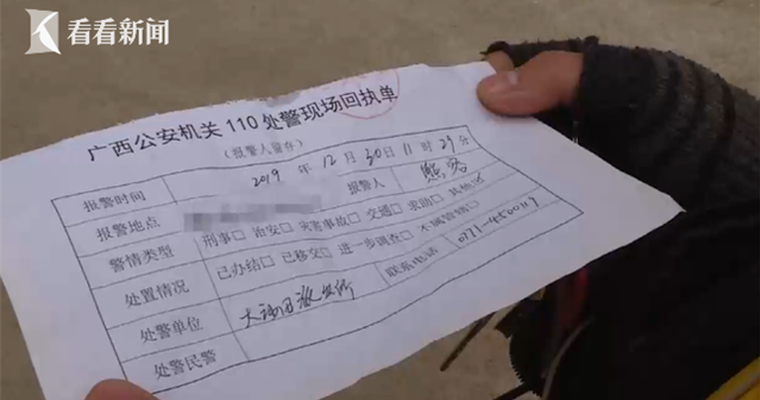 看看新闻
广西公安机关110处警现场回执单
（报警人留存）
报警时间 2019年12月30日11时29分
报警地点 报警人 熊
警情类型 刑事□ 治安□ 灾害事故□ 交通□ 求助□ 其他
处置情况 已办结□ 已移交□ 进一步调查□ 不属管辖□
处警单位 大 派出所 联系电话 0771-4500117
处警民警